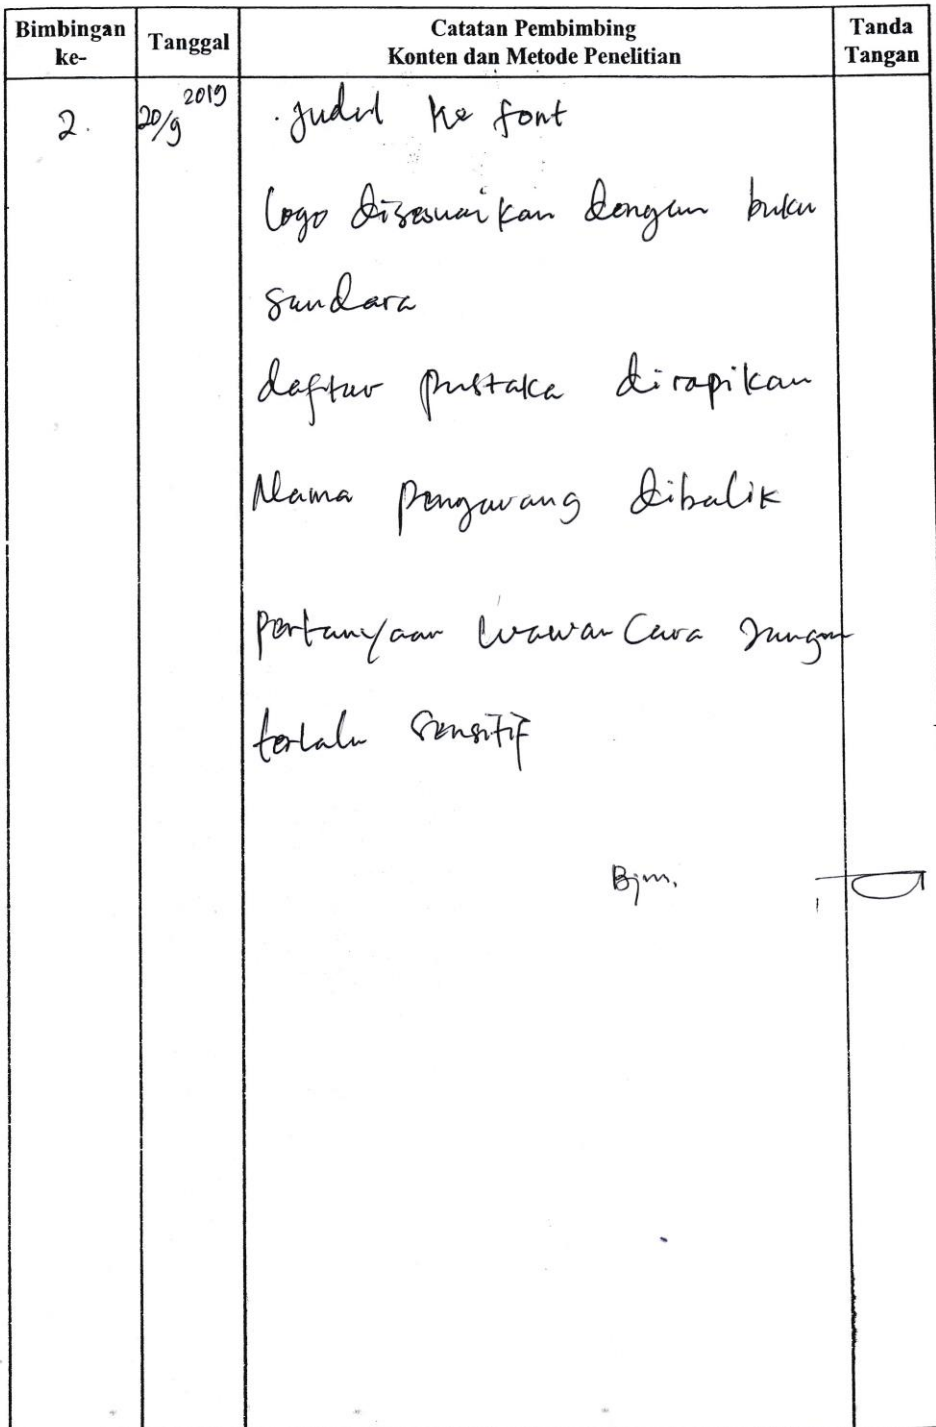 Bimbingan ke-
Tanggal
Catatan Pembimbing
Konten dan Metode Penelitian
Tanda Tangan
2.
20/9 2019
. Judul ke font
logo disesuaikan dengan buku
saudara
daftar pustaka dirapikan
Nama pengarang dibalik
Pertanyaan wawancara jangan
terlalu sensitif
Bjm.